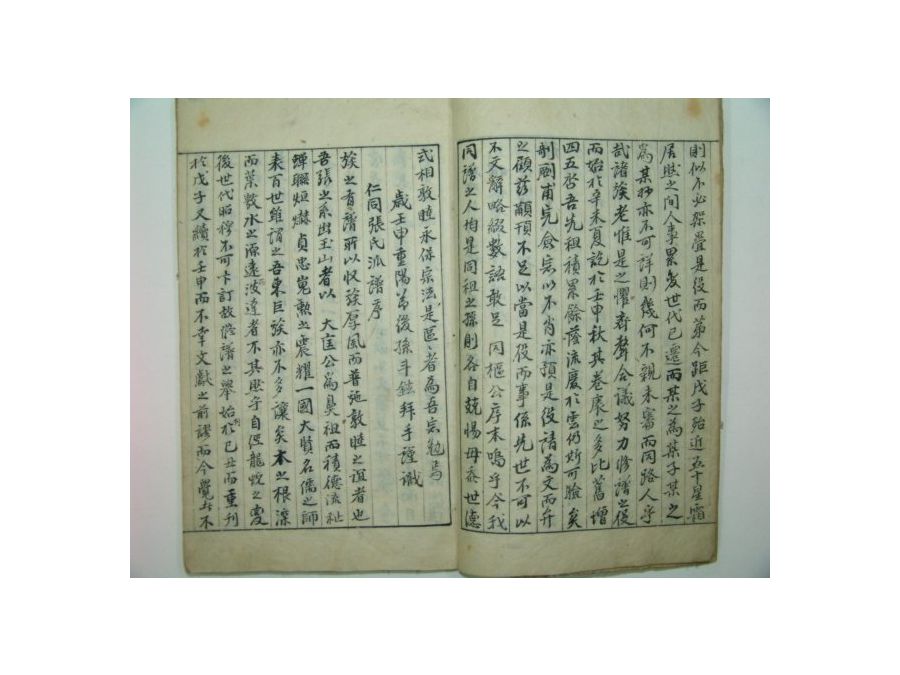 則似不必架疊是役而第今距戊子殆近五十星霜
居然之間人事累變世代已遷而某之爲某子某之
爲某孫亦不可詳則幾何不親未審而同路人乎
哉諸族老惟是之懼齊聲合議努力修譜之役
而始於辛未夏訖於壬申秋其卷袠之多比舊增
四五呇吾先祖積累餘蔭流慶於雲仍斯可驗矣
剞劂甫完僉宗以不肖亦預是役請爲文而弁
之顧玆顓預不足以當是役而事係先世不可以
不文辭略綴數語敢足 同樞公序末嗚乎今我
同譜之人均是同祖之孫則各自兢惕毋忝世德
式相敦睦永保宗法是區〻者爲吾宗勉焉
歲壬申重陽節後孫斗鉉拜手謹識
仁同張氏派譜序
族之有譜所以收族厚風而普施敦睦之誼者也
吾張之系出玉山者以 大匡公爲鼻祖而積德流祉
蟬聯烜爀貞忠嵬勳之震耀一國大賢名儒之師
表百世雖謂之吾東巨族亦不多讓矣本之根深
而葉數水之源遠波達者不其然乎自經龍蛇之変
後世代昭穆不可卞訂故修譜之舉始於己丑而重刊
於戊子又續於壬申而不幸文獻之前謬而今覺者不